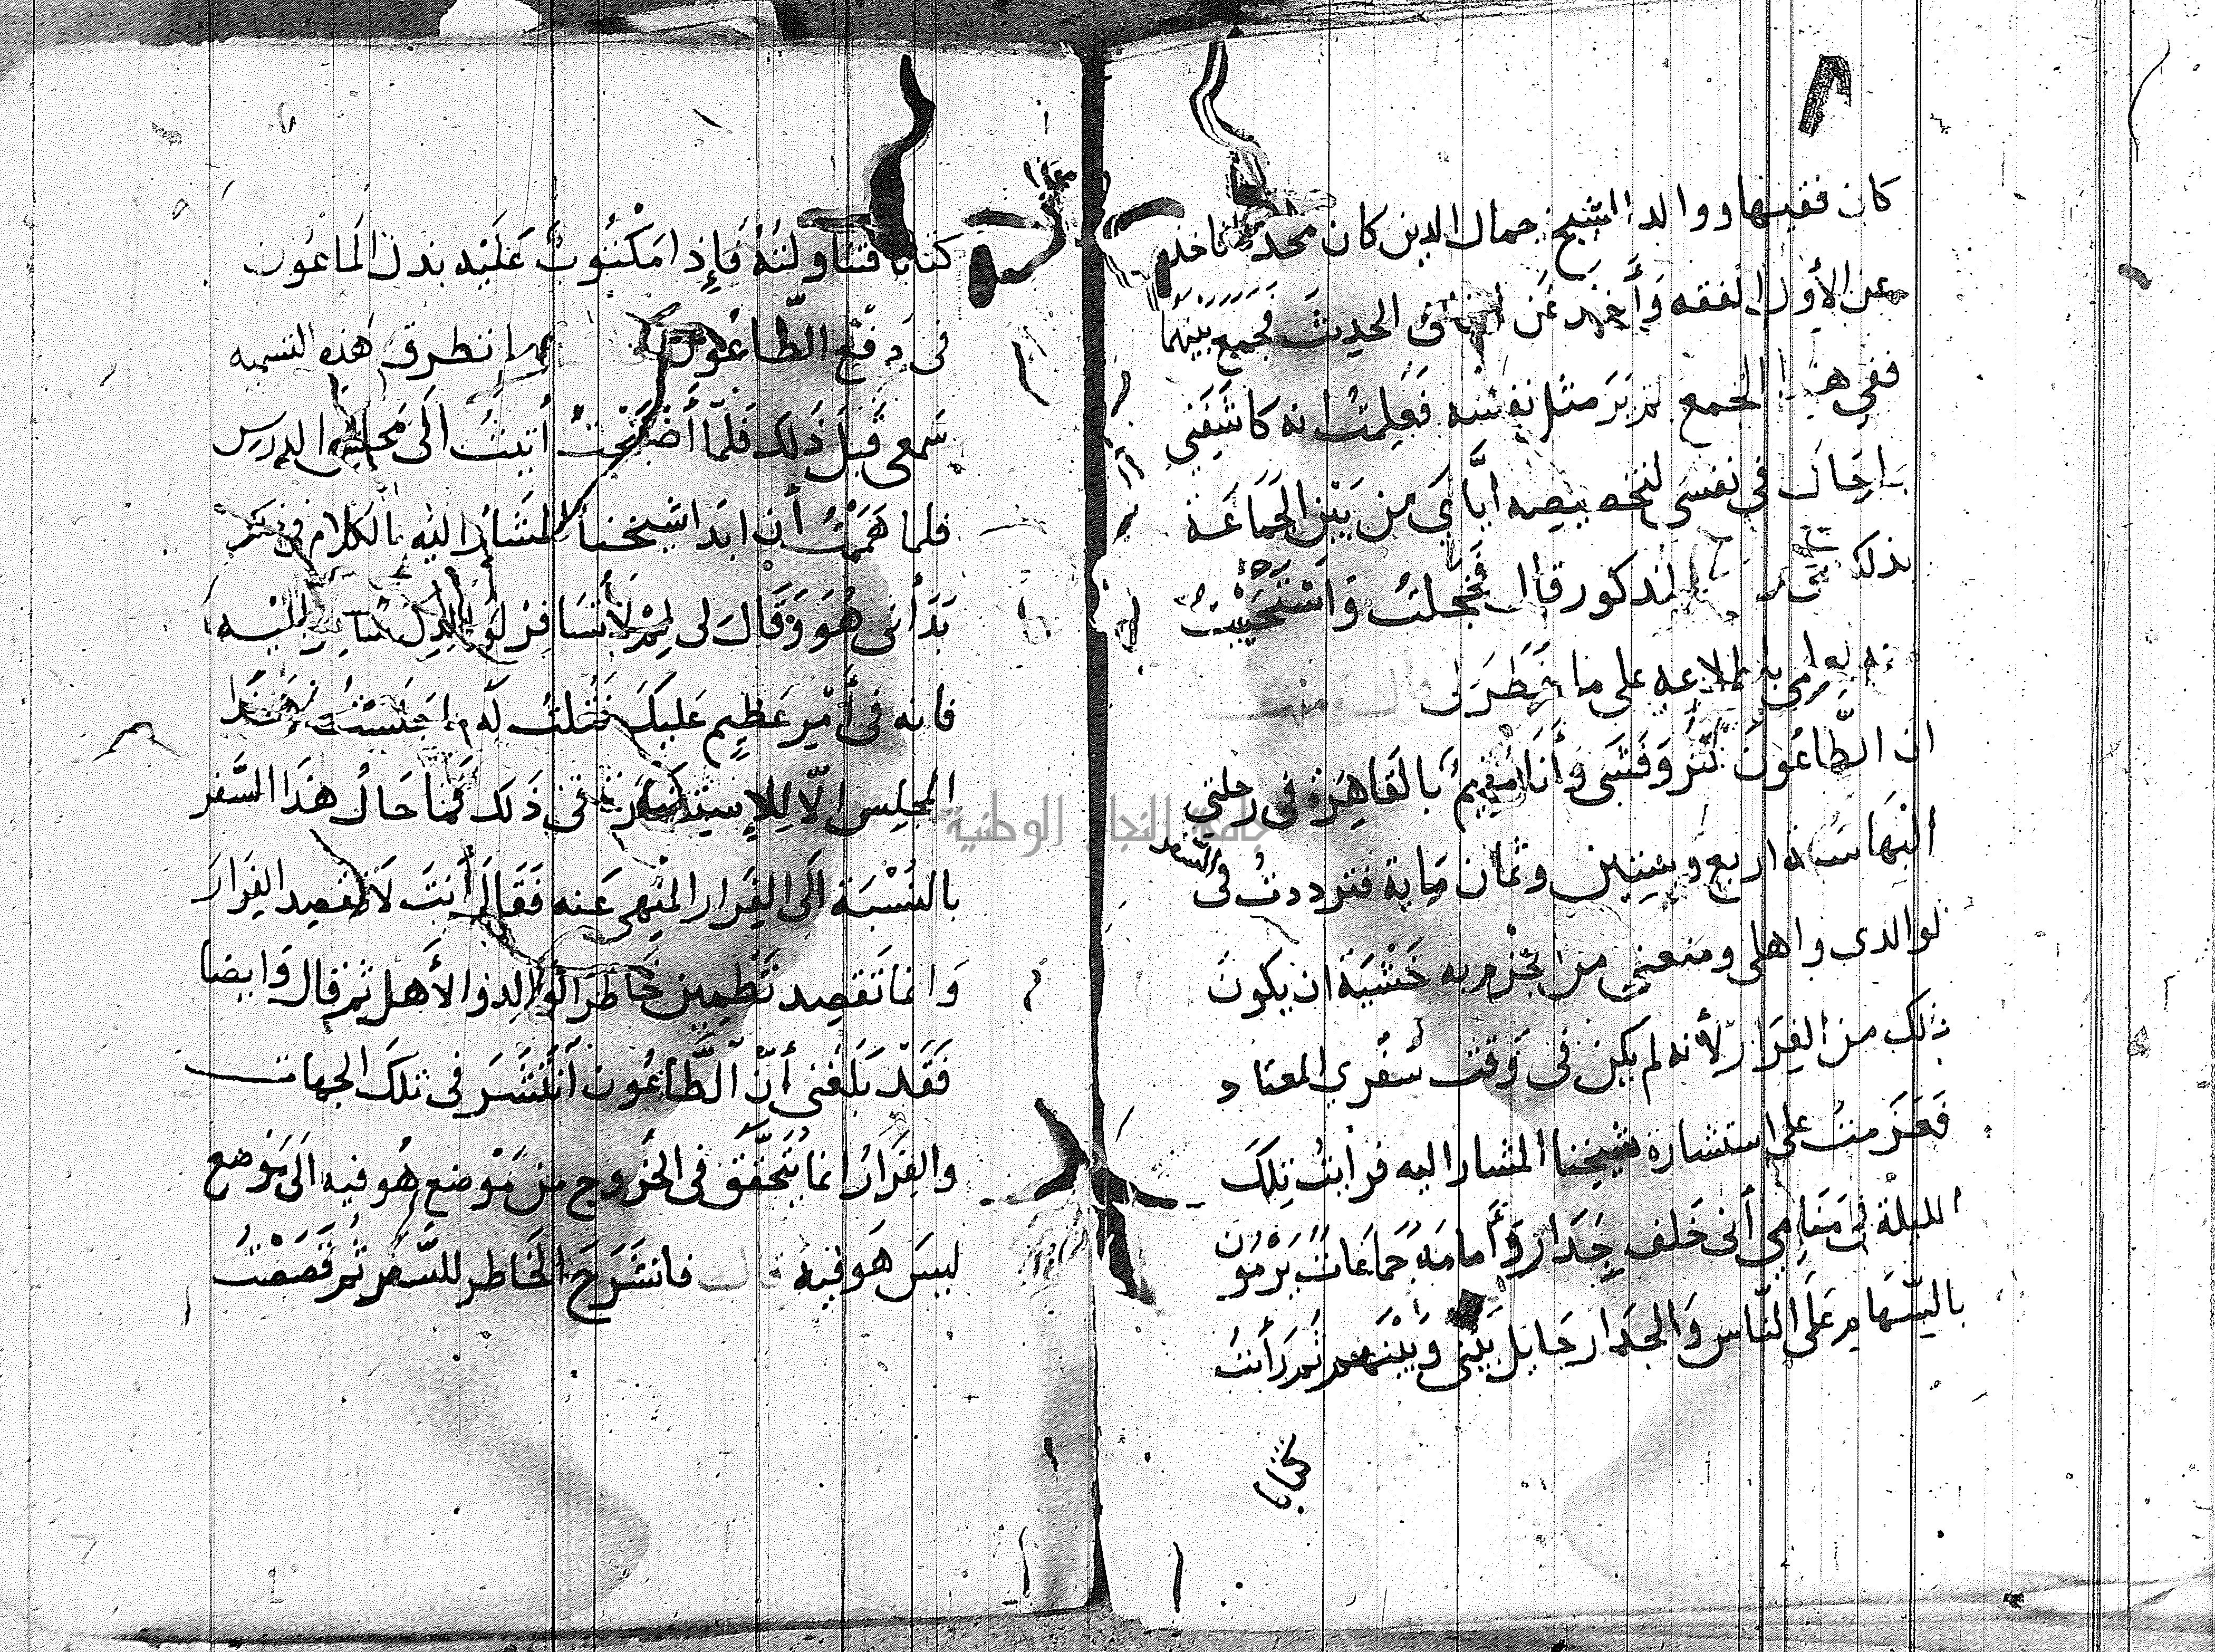 كان فقيها ووالد الشيخ جمال الدين كان محدثا فاخذ
عن الأول الفقه وَأَخَذ عَن الثاني الحديث فجمع بينهما
ففي هذا الجمع لم يَرَ مثل نفسه فَعَلِمتُ انه كاشَفَني
بما جَال في نفسي لتخصيصه ايَّايَ من بَيْن الجَماعَة
بذلك المذكور قال فَخَجلتُ وَاستَحْيَيْت
باطلاعه على ما خَطَرَ لى قال
ان الطّاعُونَ كَثُرَ وَفَشَى وَأَنَا مُقِيمٌ بالقَاهِرَة في رحلتي
اليْهَا سنة اربع وستين وثمان ماية فترددتُ في السفر
لوالدى واهلى ومنعني من الجزم به خَشْيَة ان يكونَ
ذلك من الفِرَار لأنه لم يكن فى وَقت سَفَري المعتاد
فَعَزَمتُ على استشارة شيخنا المشار اليه فرايتُ تِلكَ
الليلة فى مَنَامِي أنى خَلفَ جِدَارٍ وَأَمَامَهُ جَمَاعَاتٌ يَرْمُونَ
بالسِّهَامِ عَلَى النّاس وَالجدَار حَايل بَيْنى وَبَيْنَهم ثُمَّ رَأَيتُ
كتابا
كتابا فتناولتُهُ فَإِذا مَكْتُوبٌ عَلَيْه بذل المَاعُون
فى دَفْعِ الطّاعُون ولم تطرق هَذه التسميه
سَمعى قَبلَ ذَلِك فَلَمّا أَصْبَحْتُ أتيتُ الَى مَجلِسِ الدرس
فلما هَمَمْتُ أن ابدَا شيخنا المشَارَ اليه بالكلام في
بَدَأَنى هُوَ وَقَالَ لى لِمَ لاَ تُسَافِرْ لوَالِدِكَ
فانه فى أَمْرٍ عَظِيم عَليكَ فَقُلتُ لَه مَا جَلَسْتُ هَذَا
المجلِس الّا لِلإستِشَارَةِ في ذَلك فَمَا حَالُ هَذَا السَّفر
بالنِّسْبَة الَى الفِرَار المنهى عَنه فَقَالَ أَنتَ لَا تقصِد الفِرَارَ
وَانما تَقصِد تَطْمِين خَاطرَ الوَالِد وَالأَهل ثم قال وَايضا
فَقَدْ بَلَغَني أَنّ الطَّاعُونَ انْتَشَرَ فى تلكَ الجهات
والفِرَارُ انما يَتَحَقَّق فى الخُرُوج من مَوْضع هُو فيه الَى مَوْضع
ليسَ هَو فِيهِ قال فانشَرَحَ الخَاطر للسَّفَر ثم قَصَصْتُ
جامعة النجاح الوطنية